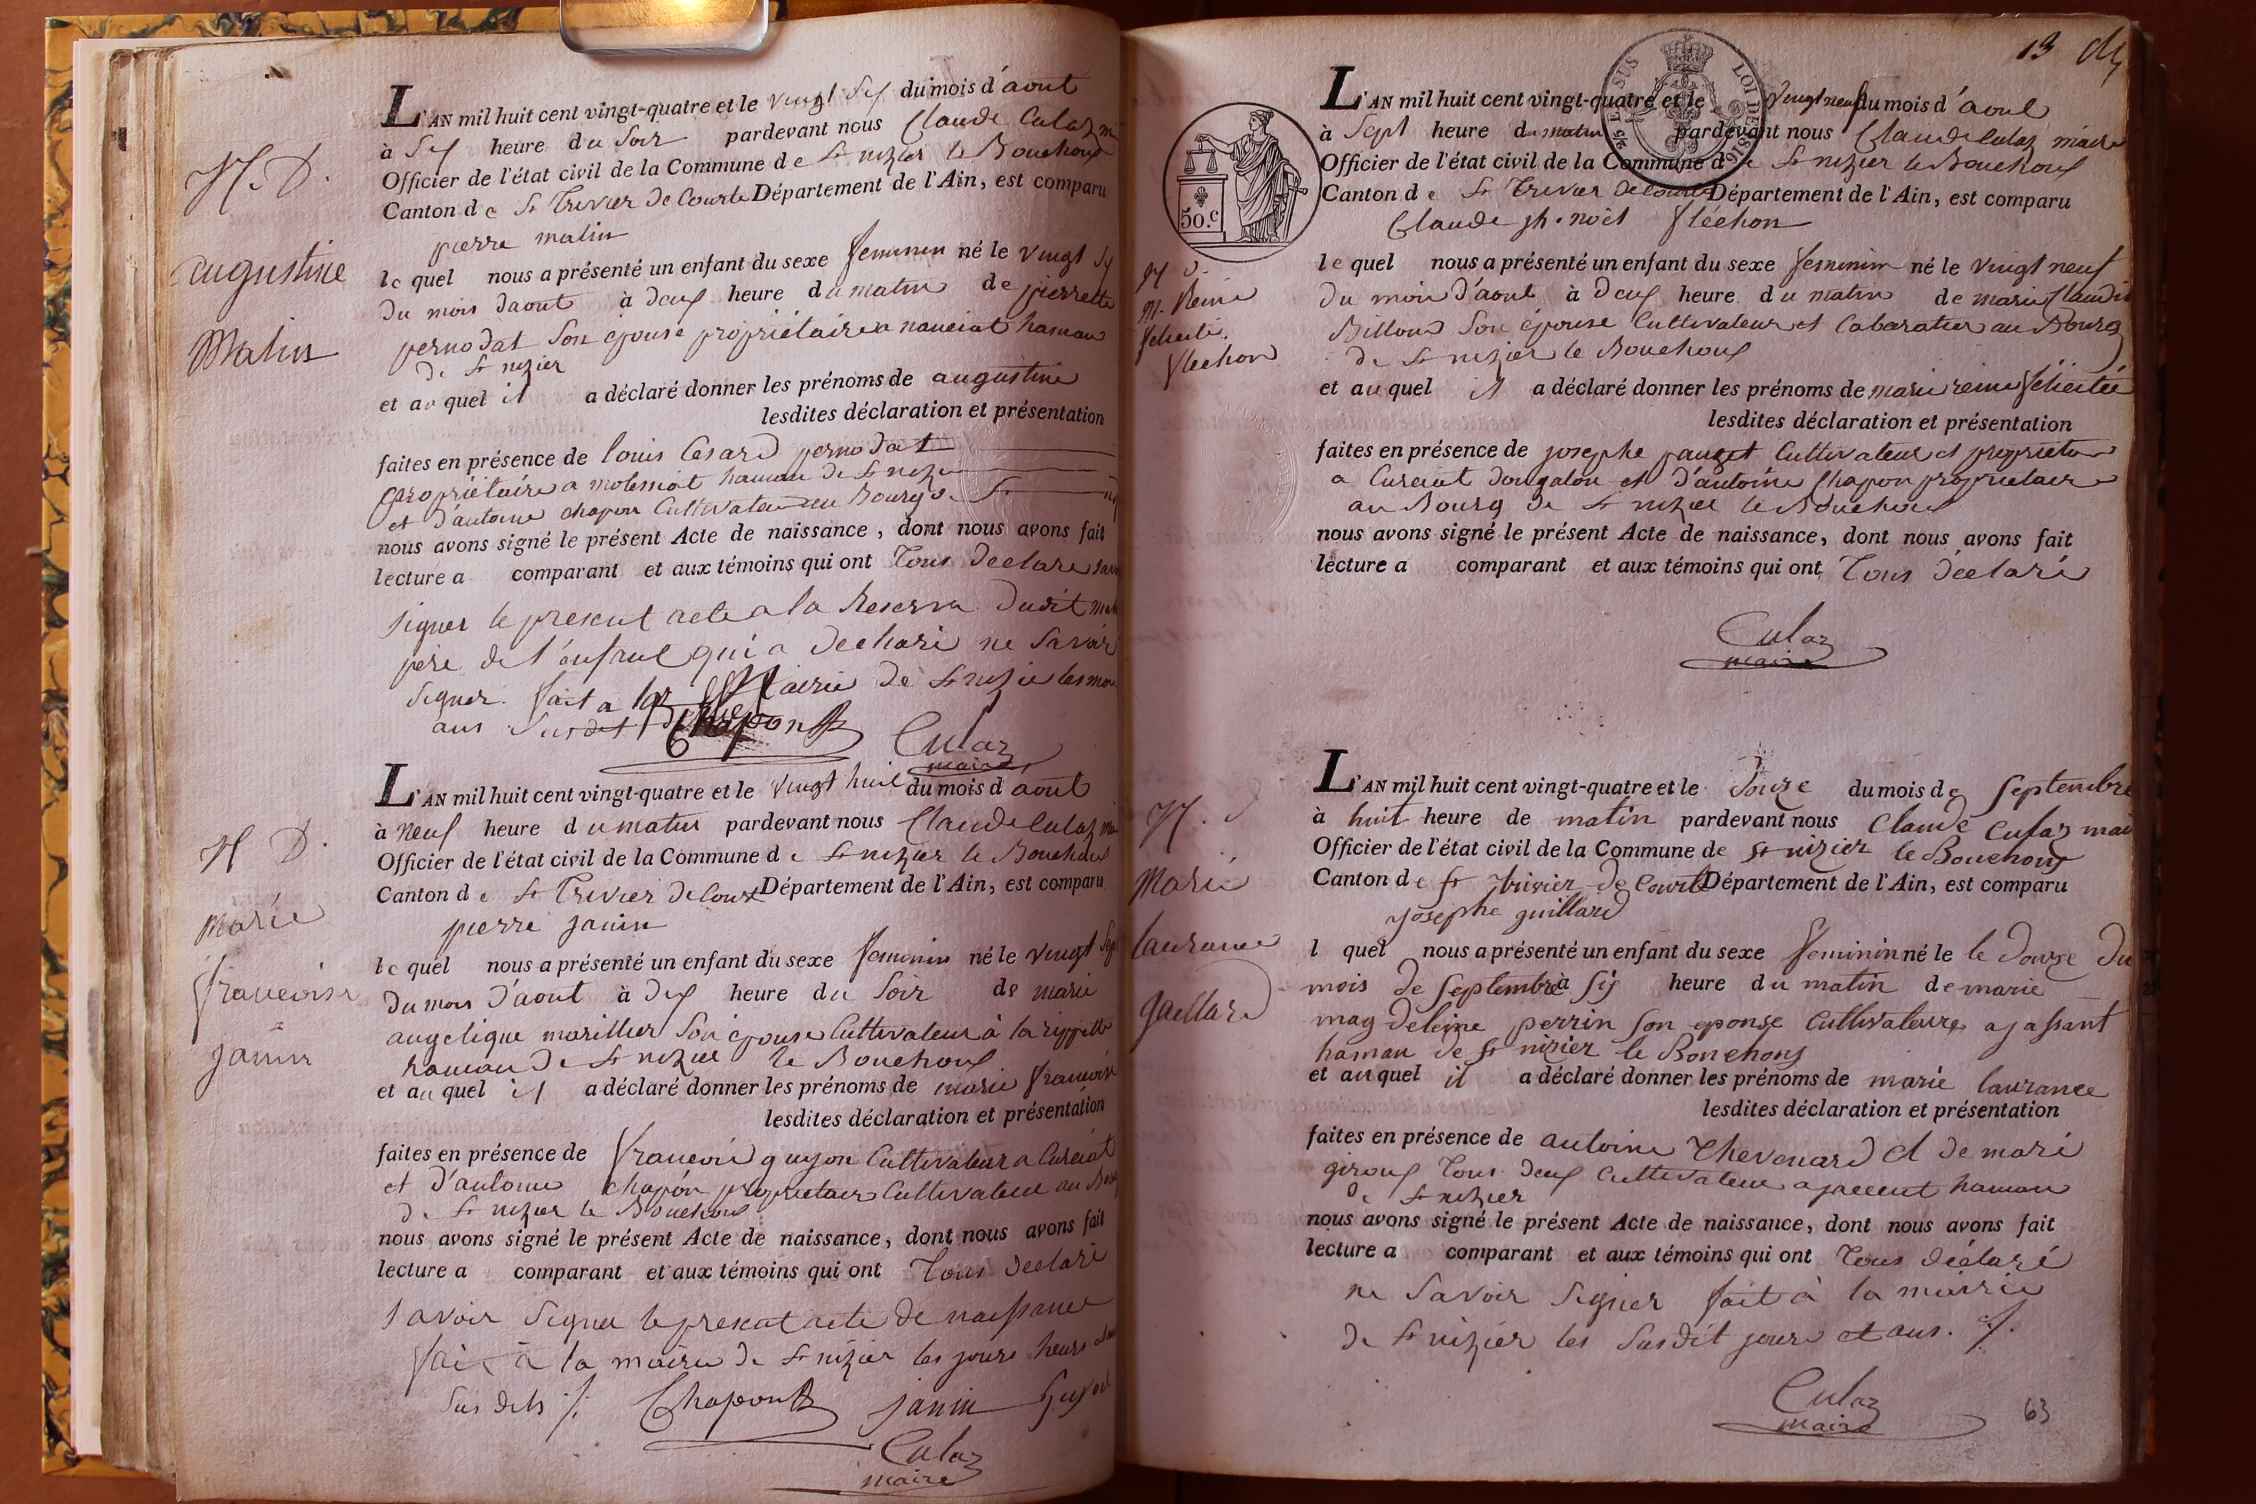 N. D.
augustine
Matin
L'AN mil huit cent vingt-quatre et le vingt six du mois d'aout
à six heure du soir pardevant nous Claude Culaz
Officier de l'état civil de la Commune de St nizier le Bouchoux
Canton de St Trivier de Courte Département de l'Ain, est comparu
pierre matin
lequel nous a présenté un enfant du sexe feminin né le vingt six
du mois daout à deux heure du matin de pierrette
pernodat son épouse propriétaire a nanciat hamau
de St nizier
et au quel il a déclaré donner les prénoms de augustine
lesdites déclaration et présentation
faites en présence de louis Cesard pernodat
propriétaire a molemiat hamau de St nizier
et d'antoine chapon Cultivateur au Bourg de St
nous avons signé le présent Acte de naissance, dont nous avons fait
lecture a comparant et aux témoins qui ont Tous declare
signer le present acte a la Reserva dudit
père de l'enfant qui a declaré ne savoir
signer. fait a la Mairie de St nizier les
ans susdit
Chapon
Culaz
maire
N D.
marie
francoise
janin
L'AN mil huit cent vingt-quatre et le vingt huit du mois d'aout
à neuf heure du matin pardevant nous Claude Culaz
Officier de l'état civil de la Commune de St nizier le Bouchoux
Canton de St Trivier de Court Département de l'Ain, est comparu
pierre janin
lequel nous a présenté un enfant du sexe feminin né le vingt sept
du mois d'aout à dix heure du soir de marie
angelique marillier son épouse Cultivateur à la rippette
hamau de St nizier le Bouchoux
et au quel il a déclaré donner les prénoms de marie francoise
lesdites déclaration et présentation
faites en présence de francois guyon Cultivateur a Curciat
et d'antoine chapon propriétaire Cultivateur au Bourg
de St nizier le Bouchoux
nous avons signé le présent Acte de naissance, dont nous avons fait
lecture a comparant et aux témoins qui ont Tous declaré
savoir signer le present acte de naissance
fait à la mairie de St nizier les jours heure
susdits /.
Chapon janin Guyon
Culaz
maire
13
LOI DE 1816
50.c
N D.
M. Reine
félicité.
flechon
L'AN mil huit cent vingt-quatre et le vingt neuf du mois d'aout
à sept heure du matin pardevant nous Claude Culaz maire
Officier de l'état civil de la Commune de St nizier le Bouchoux
Canton de St Trivier de Courte Département de l'Ain, est comparu
Claude jh. noël flechon
lequel nous a présenté un enfant du sexe feminin né le vingt neuf
du mois d'aout à deux heure du matin de marie Claudie
Billoud son épouse Cultivateur et Cabaratier au Bourg
de St nizier le Bouchoux
et au quel il a déclaré donner les prénoms de marie reine félicitée
lesdites déclaration et présentation
faites en présence de josephe pauget Cultivateur et proprietair
a Curciat dongalon et d'antoine Chapon propriétaire
au Bourg de St nizier le Bouchoux
nous avons signé le présent Acte de naissance, dont nous avons fait
lecture a comparant et aux témoins qui ont Tous déclaré
Culaz
maire
N. D
Marie
laurance
gaillard
L'AN mil huit cent vingt-quatre et le Douze du mois de Septembre
à huit heure de matin pardevant nous Claude Culaz maire
Officier de l'état civil de la Commune de St nizier le Bouchoux
Canton de St trivier de Courte Département de l'Ain, est comparu
josephe guillard
l quel nous a présenté un enfant du sexe feminin né le le douze du
mois de Septembre à six heure du matin de marie
magdeleine perrin son eponse Cultivateure a jassant
hamau de St nizier le Bonchons
et au quel il a déclaré donner les prénoms de marie laurance
lesdites déclaration et présentation
faites en présence de antoine Thevenard et de marie
giroux Tous deux Cultivateur a jaccent hamau
de St nizier
nous avons signé le présent Acte de naissance, dont nous avons fait
lecture a comparant et aux témoins qui ont Tous déclaré
ne savoir signer fait à la mairie
de St nizier les susdit jours et ans. /.
Culaz
maire
63